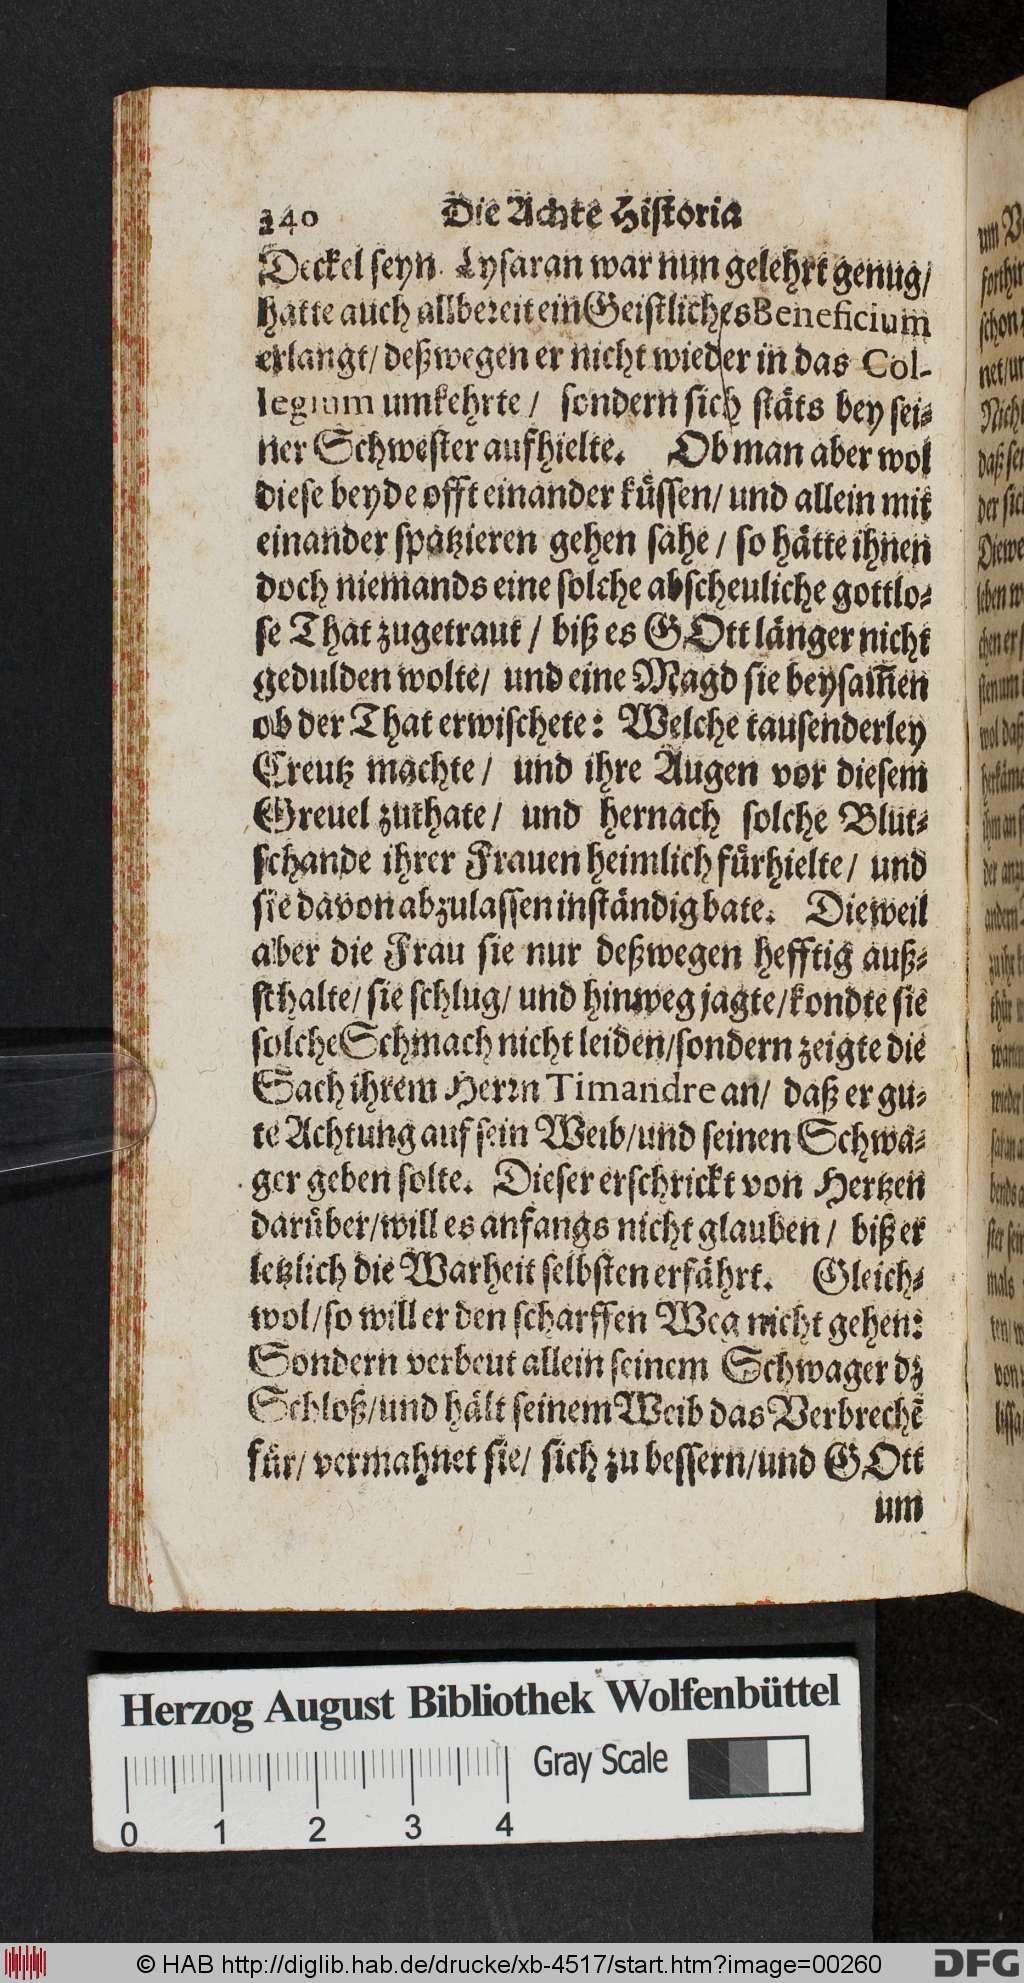 240 Die Achte Historia
Deckel seyn. Lysaran war nun gelehrt genug/
hatte auch allbereit ein Geistliches Beneficium
erlangt/ deßwegen er nicht wieder in das Col-
legium umkehrte / sondern sich stäts bey sei-
ner Schwester aufhielte. Ob man aber wol
diese beyde offt einander küssen/ und allein mit
einander spatzieren gehen sahe / so hätte ihnen
doch niemands eine solche abscheuliche gottlo-
se That zugetraut / biß es GOtt länger nicht
gedulden wolte/ und eine Magd sie beysam̃en
ob der That erwischete: Welche tausenderley
Creutz machte / und ihre Augen vor diesem
Greuel zuthate / und hernach solche Blut-
schande ihrer Frauen heimlich fürhielte / und
sie davon abzulassen inständig bate. Dieweil
aber die Frau sie nur deßwegen hefftig auß-
schalte/ sie schlug/ und hinweg jagte/ kondte sie
solche Schmach nicht leiden/ sondern zeigte die
Sach ihrem Herrn Timandre an/ daß er gu-
te Achtung auf sein Weib/ und seinen Schwa-
ger geben solte. Dieser erschrickt von Hertzen
darüber/ will es anfangs nicht glauben / biß er
letzlich die Warheit selbsten erfährt. Gleich-
wol/ so will er den scharffen Weg nicht gehen:
Sondern verbeut allein seinem Schwager dz
Schloß/ und hält seinem Weib das Verbrechẽ
für/ vermahnet sie/ sich zu bessern/ und GOtt
um
Herzog August Bibliothek Wolfenbüttel
Gray Scale
0 1 2 3 4
© HAB http://diglib.hab.de/drucke/xb-4517/start.htm?image=00260
DFG